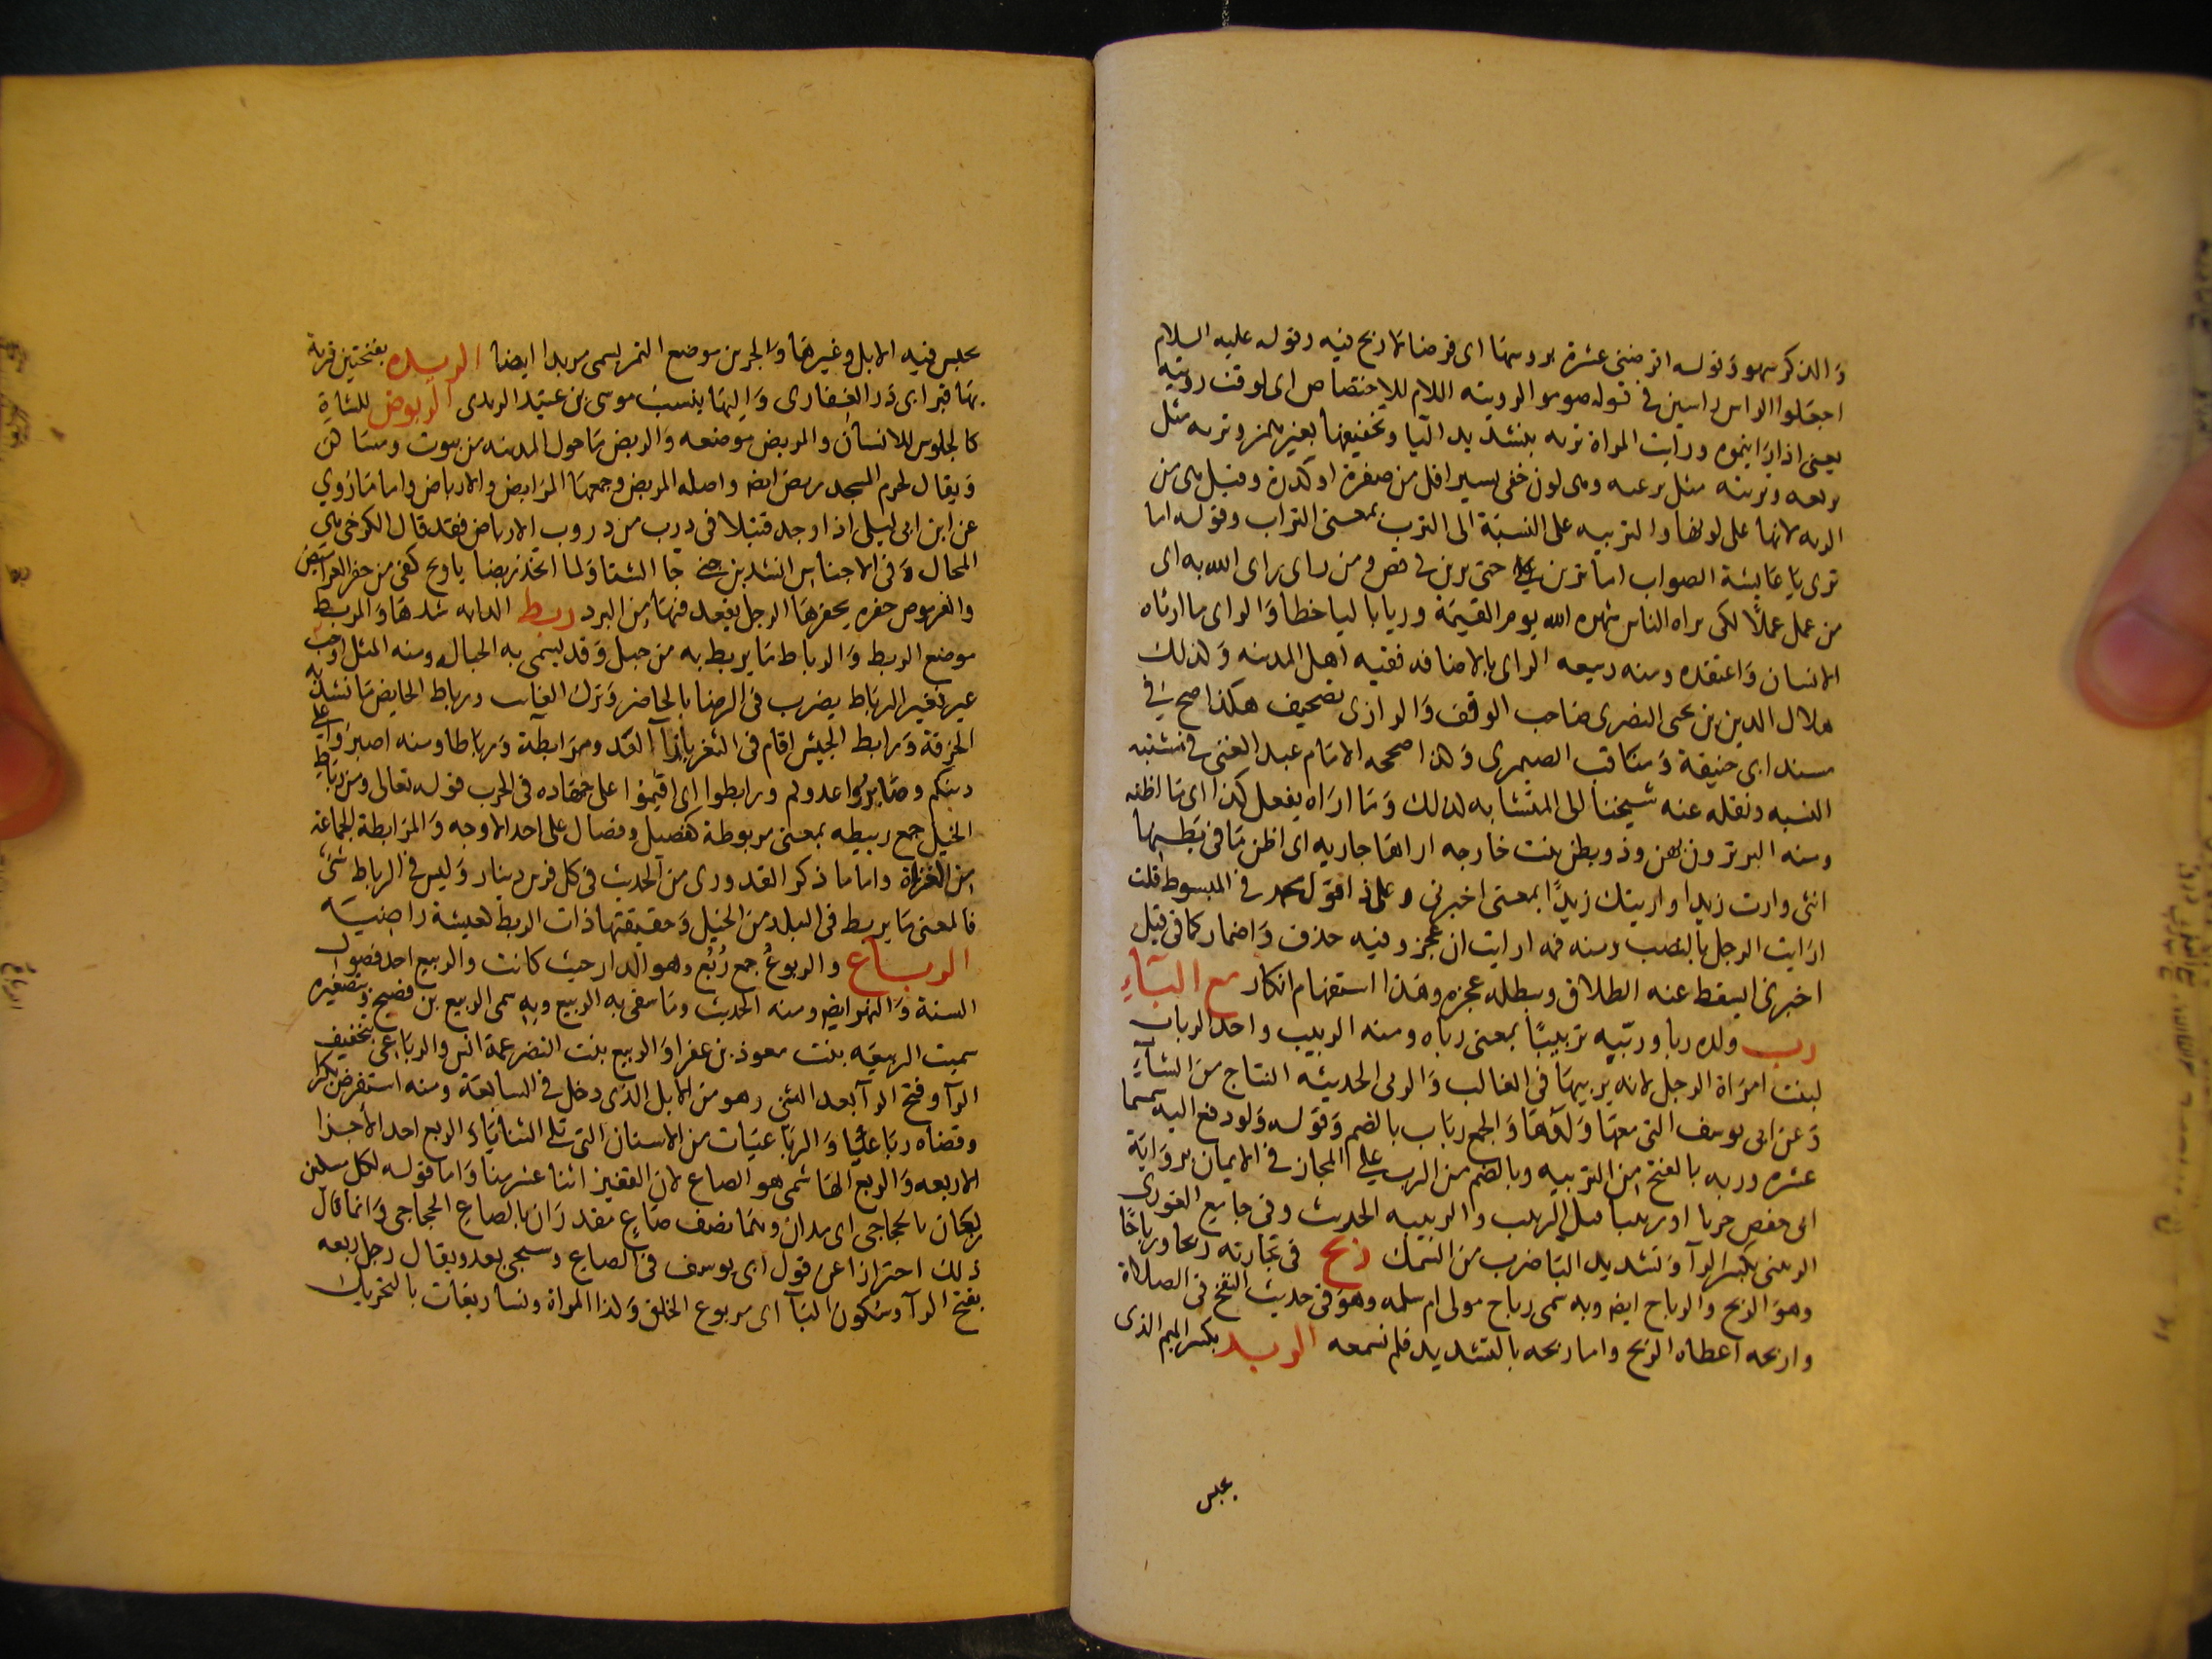 والذكر سهو وقوله اقرضنى عشرة برؤسها اى قرضا لا ربح فيه وقوله عليه السلام
اجعلوا الراس راسين فى قوله صوموا لرويته اللام للاختصاص اى لوقت رؤيته
يعنى اذا رايتموه ورايت المراة تريه بتشديد اليا وتخفيفها بغير همز وتريه مثل
تريعه وتريئه مثل تريعه وهى لون خفى يسير اقل من صفرة او كدرة وقيل هى من
الريه لانها على لونها والتربيه على النسبة الى الترب بمعنى التراب وقوله اما
ترى يا عايشة الصواب اما ترين حتى ترين فى قص ومن راى راى الله به اى
من عمل عملا لكى يراه الناس شهره الله يوم القيمة وريا باليا خطا والراى ما ارتاه
الانسان واعتقده ومنه ربيعه الراى بالاضافه فقيه اهل المدينه وكذلك
هلال الدين بن يحى البصرى صاحب الوقف والرازى تصحيف هكذا صح فى
مسند ابى حنيفة ومناقب الصيمرى وهكذا صححه الامام عبد الغنى فى مشتبه
النسبه ونقله عنه شيخنا الى المتشابه لذلك وما اراه يفعل كذا اى ما اظنه
ومنه البر ترون بهن وذو بطن بنت خارجه اراها جاريه اى اظن ما فى بطنها
انثى وارايت زيدا وارايتك زيدا بمعنى اخبرنى وعلى ذا قول محمد فى المبسوط قلت
ارايت الرجل بالنصب ومنه فمه ارايت ان عجز وفيه حذف واضمار كما فى قيل
اخبرنى ايسقط عنه الطلاق ويبطله عجزه وهذا استفهام انكار مع الباء
رب ولده ربا ورببه تربيبا بمعنى رباه ومنه الربيب واحد الربايب
لبنت امراة الرجل لانه يربيها فى الغالب والربى الحديثه النتاج من الشاء
وعن ابى يوسف التى معها ولدها والجمع رباب بالضم وقوله ولو دفع اليه سمسما
عشره وربه بالفتح من التربيه وبالضم من الرب على المجاز فى الايمان برواية
ابى حفص جربا او ربيبا قيل الربيب والربيبه الحديث وفى جامع الغورى
الربيثى بكسر الرا وتشديد البا ضرب من السمك ربح فى تجارته ربحا ورباحا
وهو الربح والرباح ايض وبه سمى رباح مولى ام سلمه وهو فى حديث النفخ فى الصلاة
واربحه اعطاه الربح واما ربحه بالتشديد فلم نسمعه المربد بكسر الميم الذى
يحبس
يحبس فيه الابل وغيرها والجرين موضع التمر يسمى مربدا ايضا الربذه بفتحتين قرية
بها قبر ابى ذر الغفارى واليها ينسب موسى بن عبيد الربذى الربوض للشاة
كالجلوس للانسان والمربض موضعه والربض ما حول المدينه من بيوت ومساكن
ويقال لحرم المسجد ربض ايض واصله المربض وجمعها المرابض والارباض واما ما روى
عن ابن ابى ليلى اذا وجد قتيلا فى درب من دروب الارباض فقد قال الكرخى هى
المحال وفى الاجناس انشد بن جنى جا الشتا ولما اتخذ ربضا يا ويح كفى من حفر القراميص
والقرموص حفره يحفرها الرجل يقعد فيها من البرد ربط الدابه شدها والمربط
موضع الربط والرباط ما يربط به من حبل وقد يسمى به الحباله ومنه المثل ان ذهب
عير فعير فى الرباط يضرب فى الرضا بالحاضر وترك الغايب ورباط الحايض ما تشد به
الخرقة ورابط الجيش اقام فى الثغر بازآ العدو مرابطة ورباطا ومنه اصبروا على
دينكم وصابروا عدوكم ورابطوا اى اقيموا على جهاده فى الحرب قوله تعالى ومن رباط
الخيل جمع ربيطه بمعنى مربوطة كفصيل وفصال على احد الاوجه والمرابطة الجماعة
من الغزاة واما ما ذكر القدورى من الحديث فى كل فرس دينار وليس فى الرباط شئ
فالمعنى ما يربط فى البلد من الخيل وحقيقتها ذات الربط كعيشة راضيه
الرباع والربوع جمع ربع وهو الدار حيث كانت والربيع احد فصول
السنة والنهر ايض ومنه الحديث وما سقى به الربيع وبه سمى الربيع بن صبيح وبتصغيره
سميت الربيع بنت معوذ بن عفرا والربيع بنت النضر عمة انس والرباعى بتخفيف
الرآ وفتح الرآ بعد الثنى وهو من الابل الذى دخل فى السابعة ومنه استقرض بكرا
وقضاه رباعيا والرباعيات من الاسنان التى تلى الثنايا والربع احد الاجزا
الاربعه والربع الهاشمى هو الصاع لان القفيز اثنا عشر منا واما قوله لكل مسكين
ربعان بالحجاجى اى مدان وهما نصف صاع مقدران بالصاع الحجاجى وانما قال
ذلك احترازا عن قول ابى يوسف فى الصاع وسيجى بعد ويقال رجل ربعه
بفتح الرآ وسكون البآ اى مربوع الخلق وكذا المراة ونسا ربعات بالتحريك